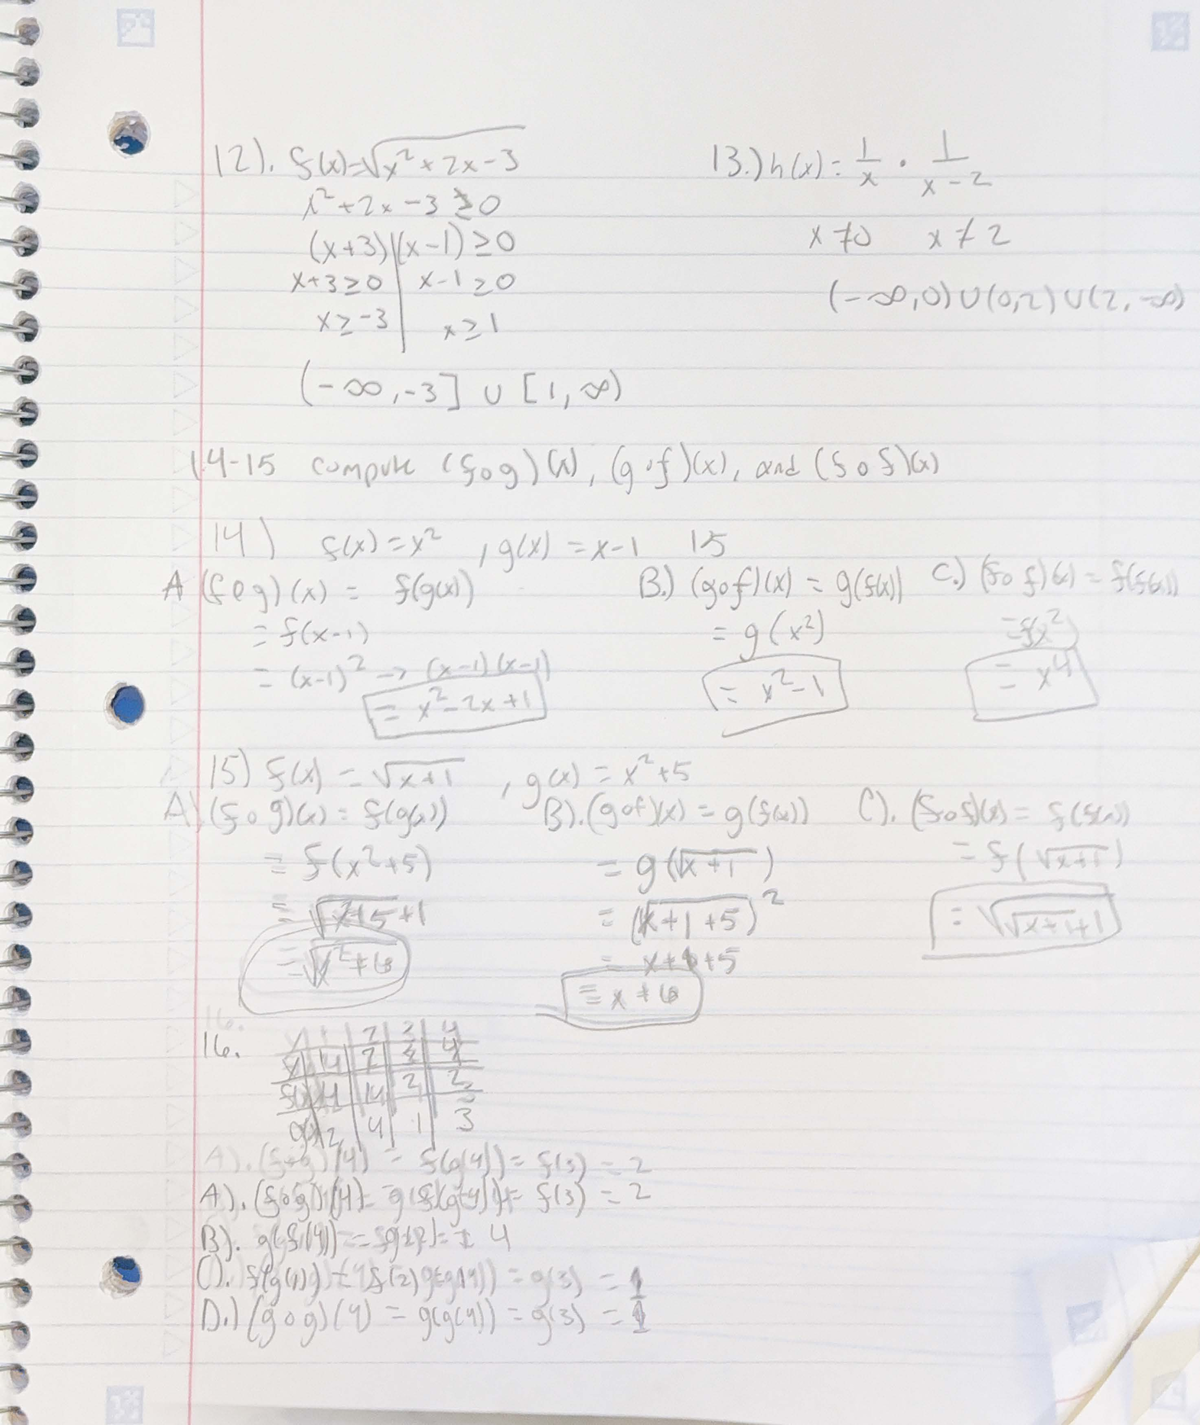 12). f(x)=√x²+2x-3
x²+2x-3≥0
(x+3)(x-1)≥0
x+3≥0 | x-1≥0
x≥-3 | x≥1
(-∞,-3] ∪ [1,∞)
13.) h(x)= 1/x · 1/x-2
x≠0 x≠2
(-∞,0)∪(0,2)∪(2,-∞)
14-15 compute (f∘g)(x), (g∘f)(x), and (f∘f)(x)
14) f(x)=x² , g(x)=x-1 15
A (f∘g)(x) = f(g(x))
= f(x-1)
= (x-1)² → (x-1)(x-1)
= x²-2x+1
B.) (g∘f)(x) = g(f(x))
= g(x²)
= x²-1
C.) (f∘f)(x) = f(f(x))
=f(x²)
= x⁴
15) f(x) = √x+1 , g(x) = x²+5
A) (f∘g)(x) = f(g(x))
= f(x²+5)
= √x²+5+1
= √x²+6
B). (g∘f)(x) = g(f(x))
= g(√x+1)
= (√x+1+5)²
= x+1+5
= x+6
C). (f∘f)(x) = f(f(x))
= f(√x+1)
= √√x+1+1
16.
16.
4 1 3
A). (4) = f(g(4)) = f(3) = 2
A). (f∘g)(4) = f(3) = 2
B). = 4
C). = g(3) = 1
D.) (g∘g)(4) = g(g(4)) = g(3) = 1